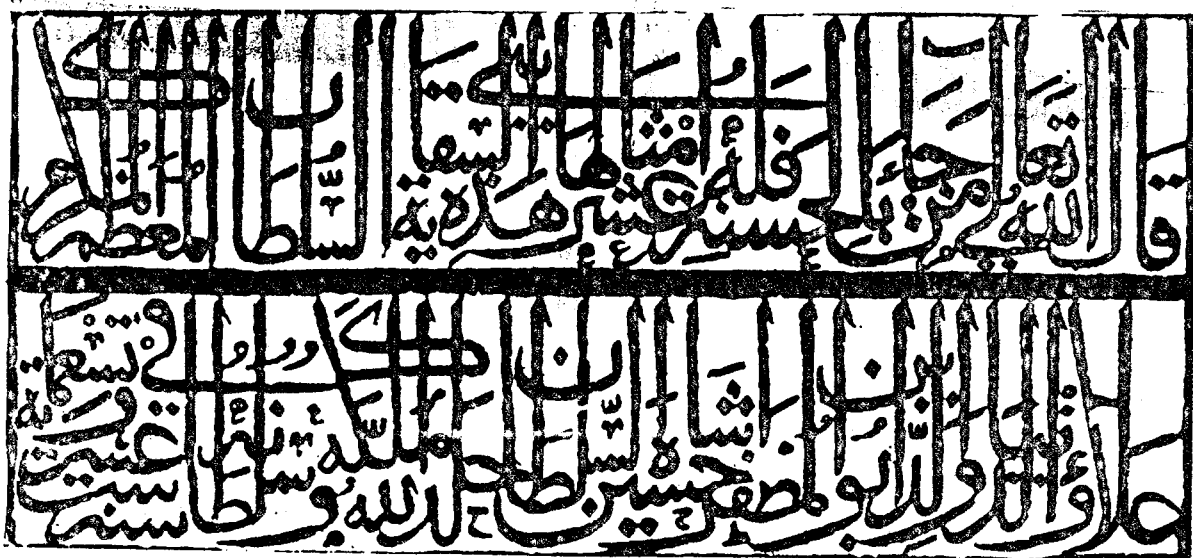 قال الله تعالى من جاء بالحسنة فله عشر امثالها بنى هذه السقاية السلطان المعظم المكرم
علاء الدنيا والدين ابو المظفر حسين شاه السلطان خلد الله ملكه وسلطانه في سنه ست عشر وتسعماية